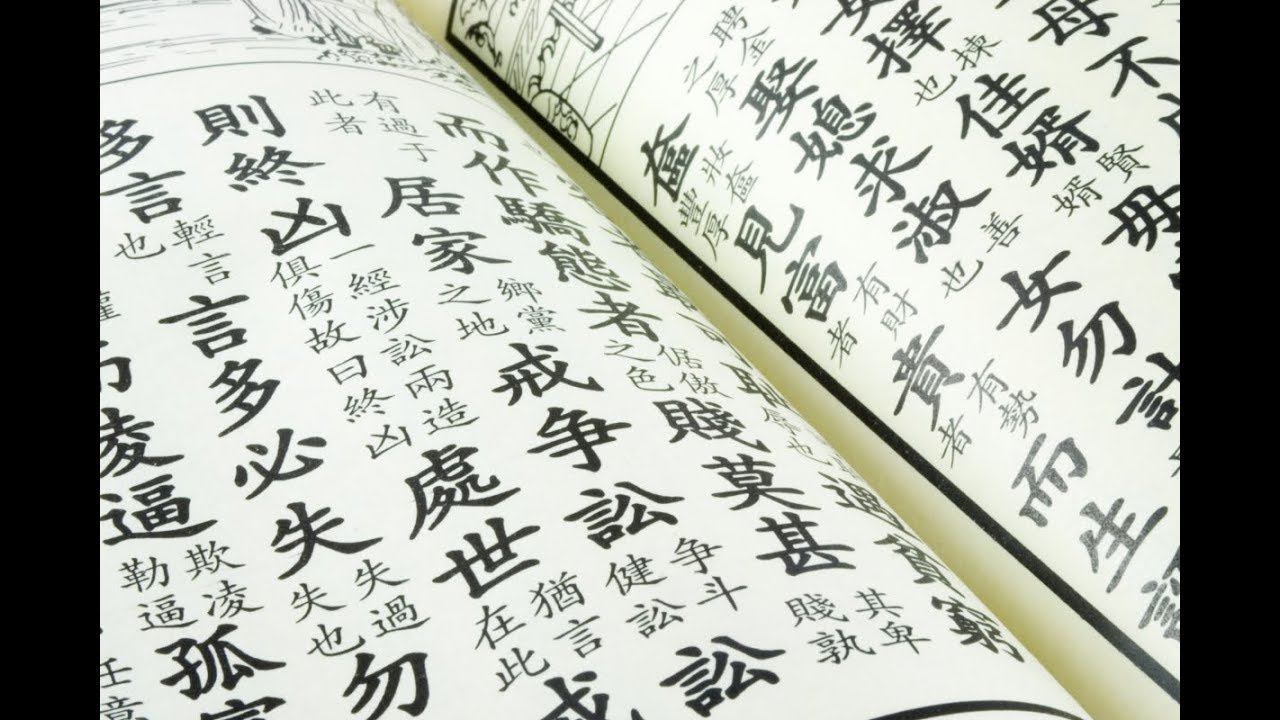 母不
擇揀也佳婿賢婿毋
聘金之厚娶媳求淑善也女勿計
奩妝奩豐厚見富有財者貴有勢者而生諂
遇貧窮
而作驕態者倨傲之色賤莫甚其卑賤孰
有過于此者居家鄉黨之地戒争訟争斗健訟訟
則終凶一經涉訟兩造俱傷故曰終凶處世猶言在此戒
多言輕言也言多必失失過失也勿
凌逼欺凌勒逼孤寡
任意